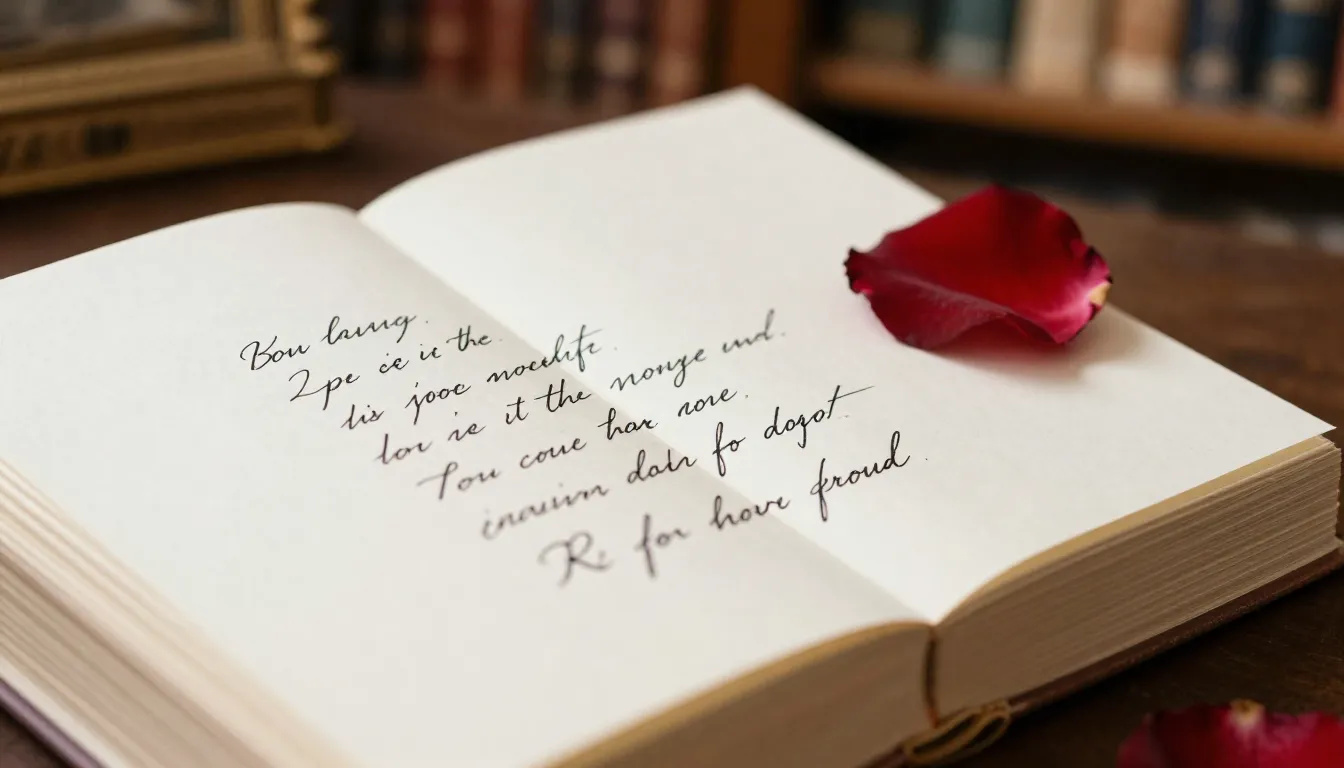 Bou laung.
2pe ċe ic the.
lis jooc nocdift.
lor ie it the nonge und.
Tou coue har nore.
inauinn dah fo dogot.
Ri for hove froud.